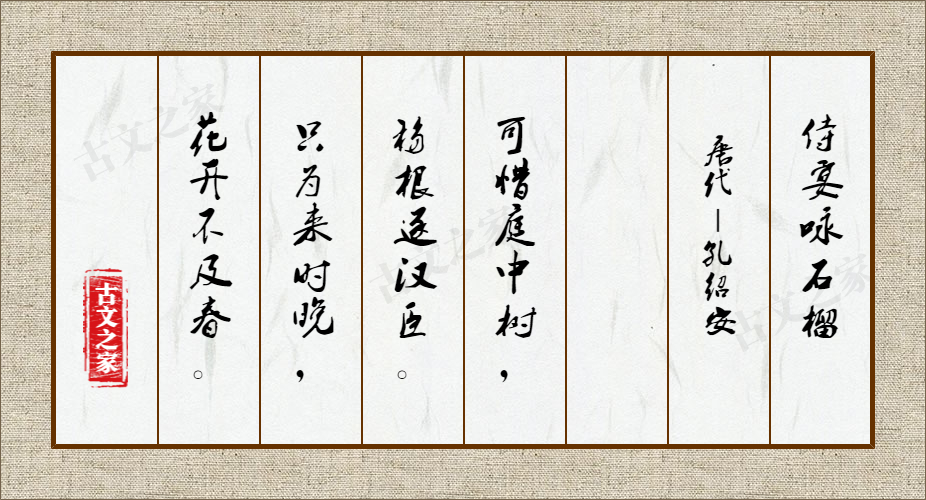 侍宴咏石榴
唐代—孔绍安
可惜庭中树，
移根逐汉臣。
只为来时晚，
花开不及春。
古文之家
古文之家
古文之家
古文之家